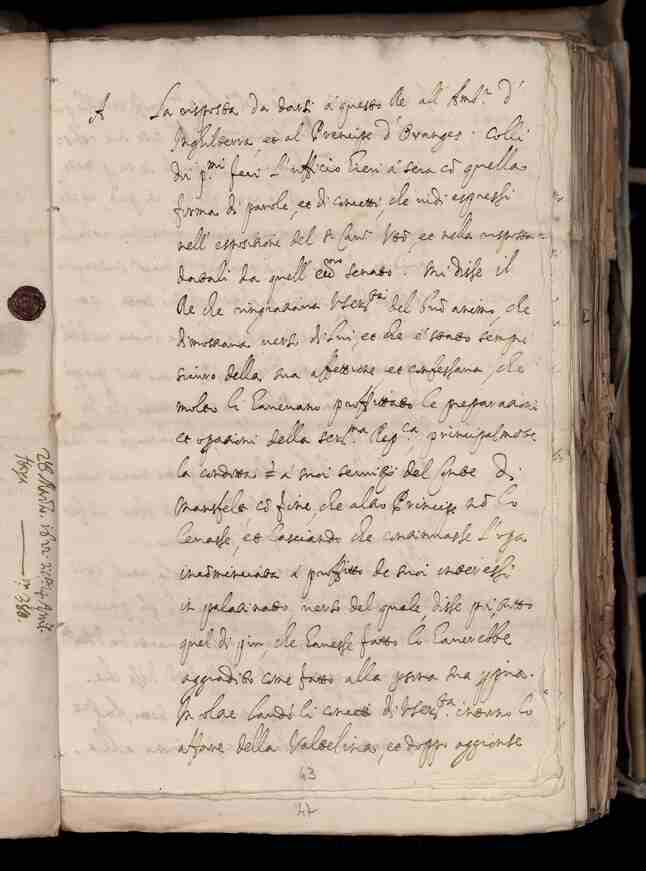 A La risposta da darsi a questo Re all' Amb.r d'
Inghilterra, et al Prencipe d' Oranges. Colli
doi p.mi feci l'ufficio hieri à sera cõ quella
forma di parole, et di concetti, che vidi espressi
nell' espositione del s.r Cav.r Vot, et nella risposta
datali da quell' ecc.mo senato. Mi disse il
Re che ringratiava V. Ser.tà del buõ animo, che
dimostrava verso di lui, et che è stato sempre
sicuro della sua affettione et confessava, che
molto li havevano profittato le preparationi
et operationi della ser.ma Rep.ca principalmẽte
la condotta à suoi servizij del Conte di
Mansfelt cõ fine, che altro Prencipe nõ lo
levasse, et lasciando che continuasse l'opa
in palatinato verso del quale disse
quel di più, che havesse fatto lo haverebbe
aggradito come fatto alla
In oltre laudò li concetti di V. Ser.tà intorno lo
affare della Valtelina, et doppo aggionse
43
47
28 Marzo 1622
n.° 380